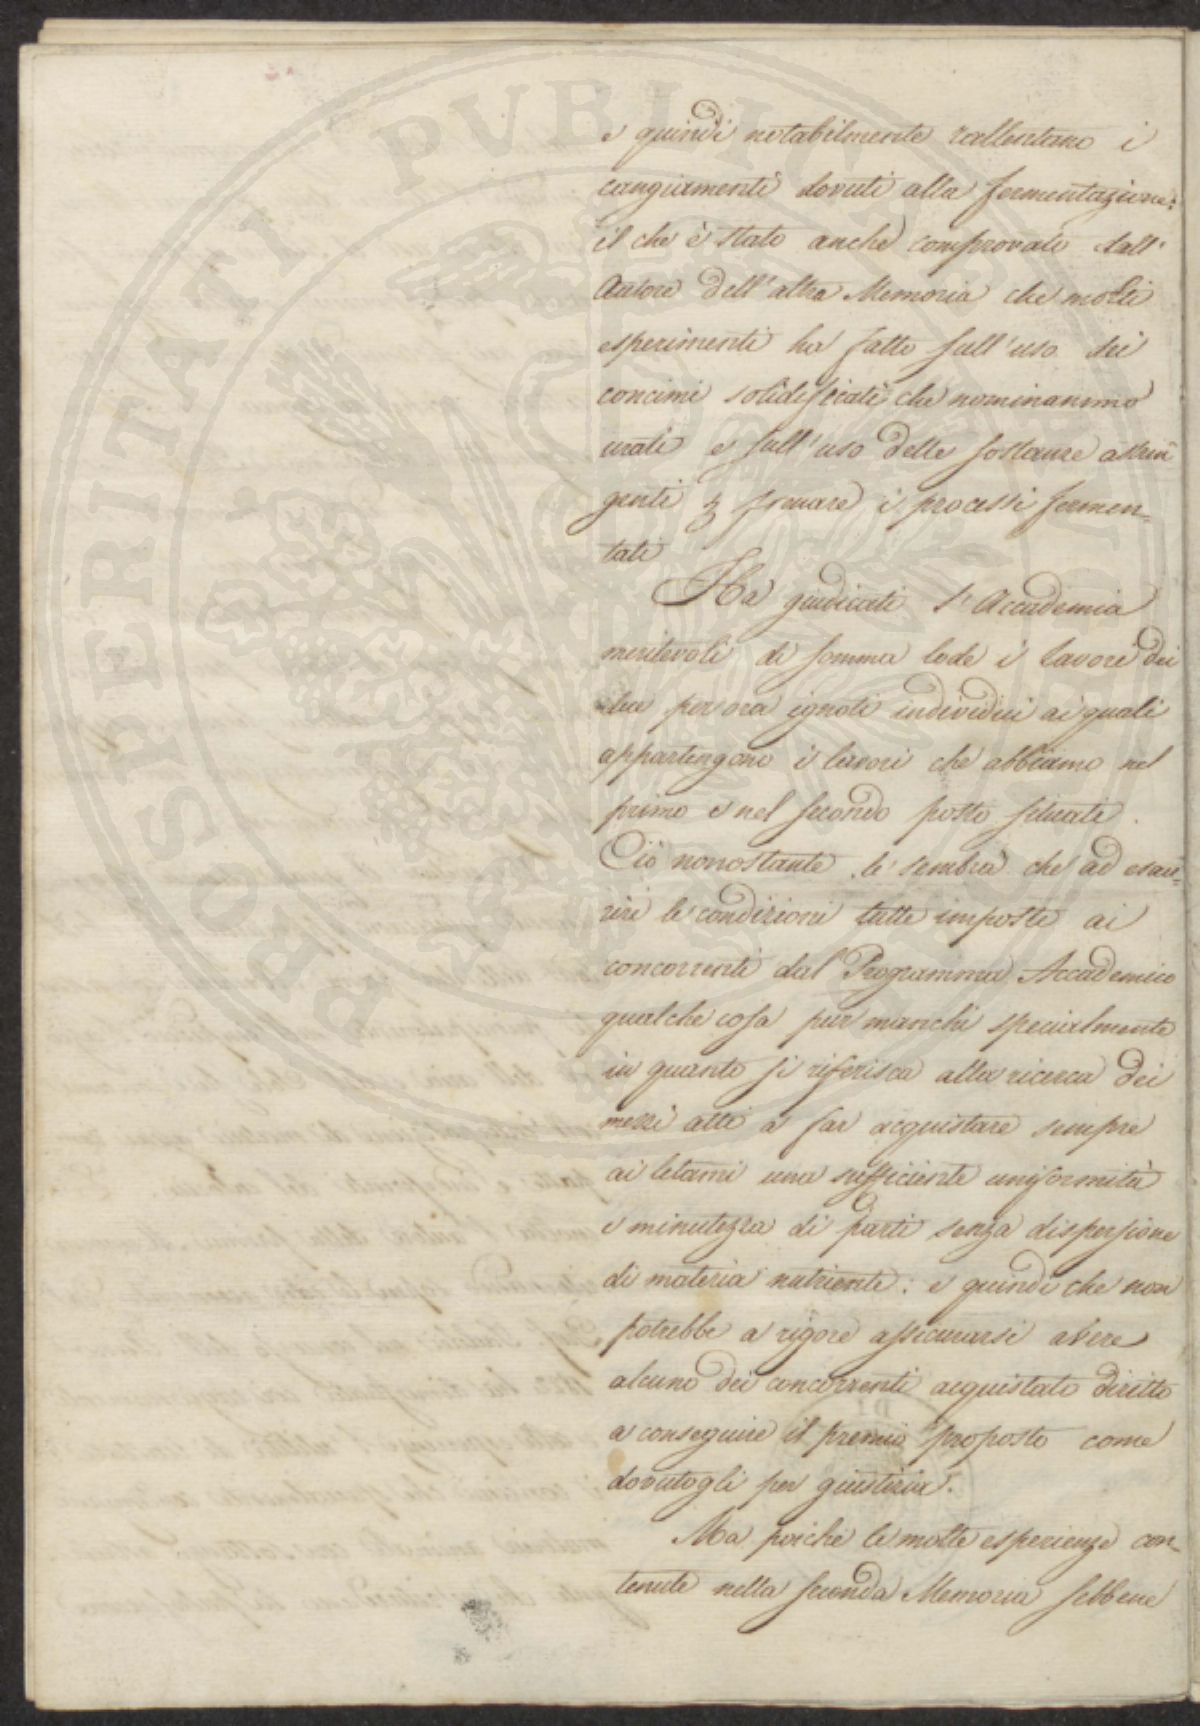 e quindi notabilmente rallentano i
cangiamenti dovuti alla fermentazione:
il che è stato anche comprovato dall'
Autore dell'altra Memoria che molti
esperimenti ha fatto sull'uso dei
concimi solidificati che nominammo
urati e sull'uso delle sostanze astrin
genti p frenare i processi fermen=
tati
Ha giudicati l'Accademia
meritevoli di somma lode i lavori dei
due per ora ignoti individui ai quali
appartengono i lavori che abbiamo nel
primo e nel secondo posto situati.
Ciò nonostante le sembra che ad esau=
rire le condizioni tutte imposte ai
concorrenti dal Programma Accademico
qualche cosa pur manchi specialmente
in quanto si riferisca alla ricerca dei
mezzi atti a far acquistare sempre
ai letami una sufficiente uniformità
e minutezza di parti senza dispersione
di materia nutriente: e quindi che non
potrebbe a rigore assicurarsi avere
alcuno dei concorrenti acquistato diritto
a conseguire il premio proposto come
dovutogli per giustizia.
Ma poiche le molte esperienze con=
tenute nella seconda Memoria sebbene
PROSPERITATI PVBLICAE